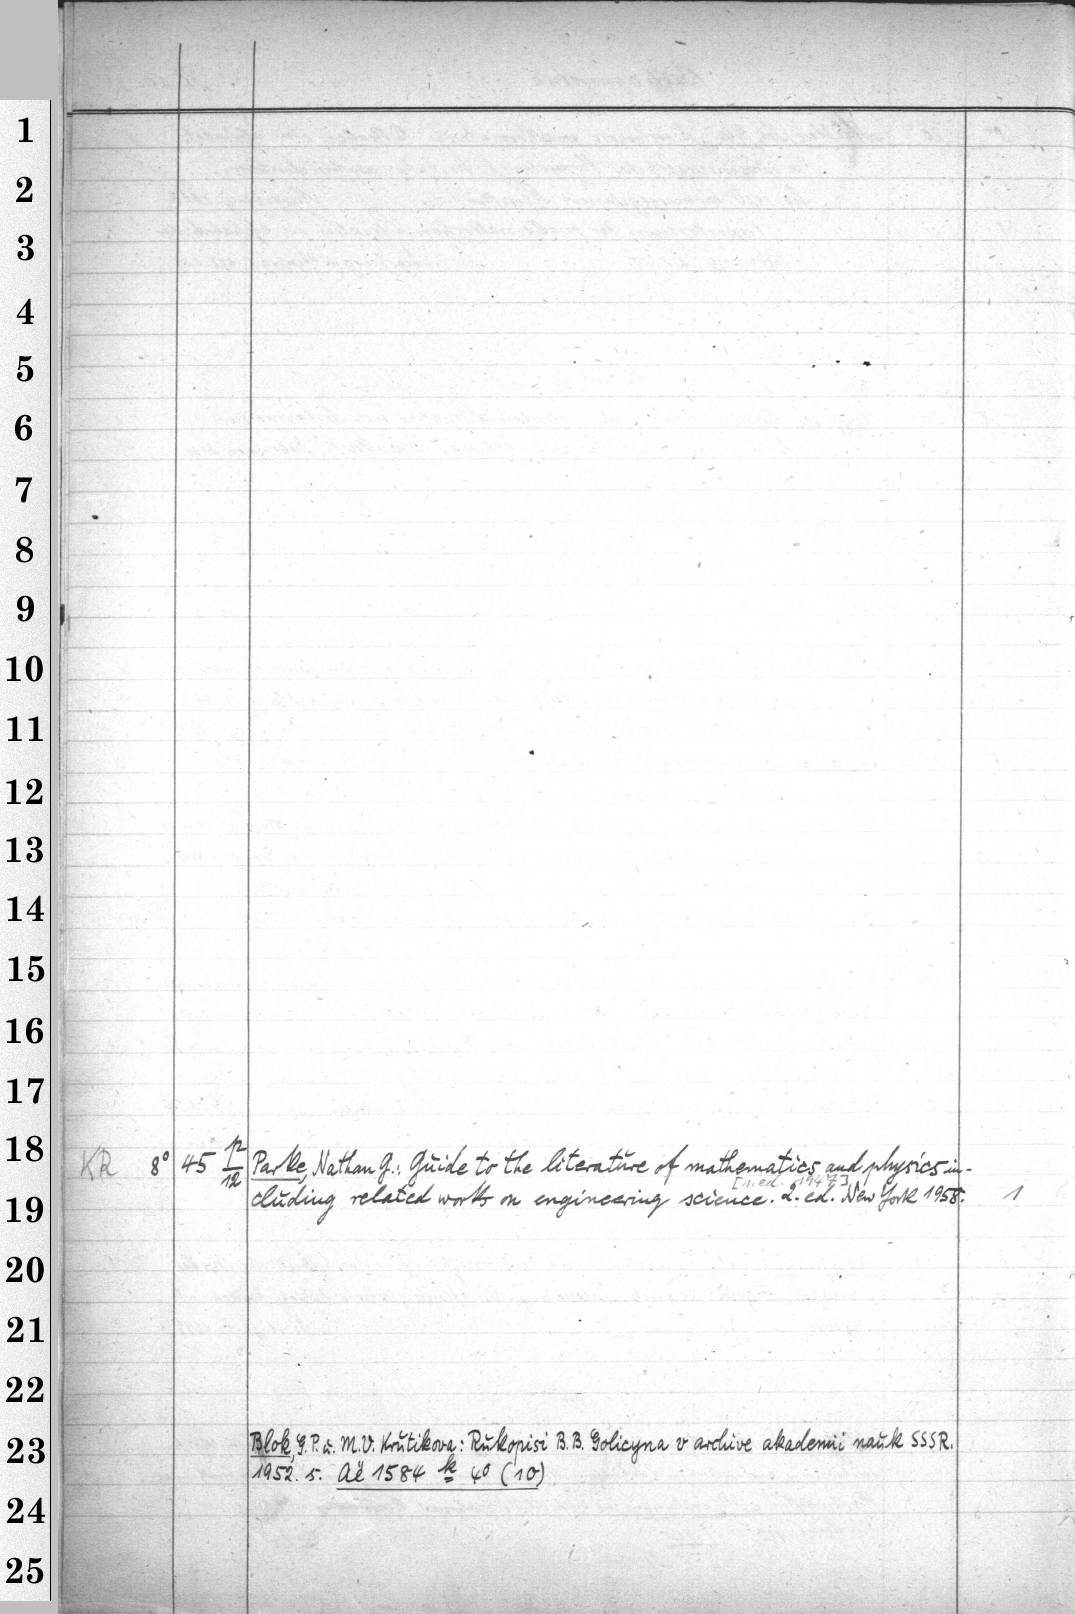 1
2
3
4
5
6
7
8
9
10
11
12
13
14
15
16
17
18
KR 8° 45 p/12 Parke, Nathan G.: Guide to the literature of mathematics and physics in-
[1. ed. 1947]
19
cluding related works on engineering science. 2. ed. New York 1958. 1
20
21
22
23
Blok, G.P. u. M.V. Krutikova: Rukopisi B.B. Golicyna v archive akademii nauk SSSR.
1952. s. Aë 1584 k 4° (10)
24
25